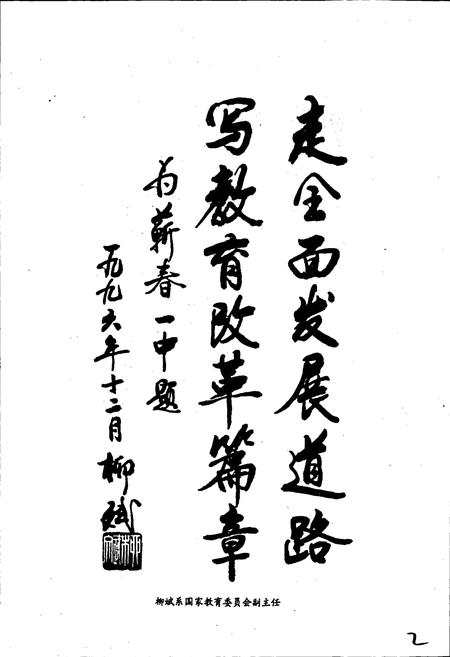 走全面发展道路
写教育改革篇章
为蕲春一中题
一九九六年十二月 柳斌
柳斌系国家教育委员会副主任
2